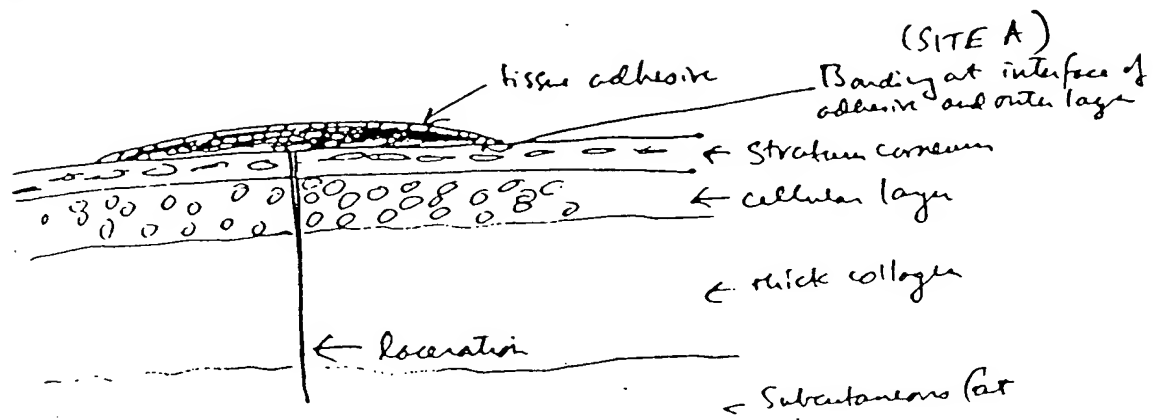 (SITE A)
tissue adhesive
Bonding at interface of
adhesive and outer layer
Stratum corneum
cellular layer
thick collagen
laceration
Subcutaneous fat